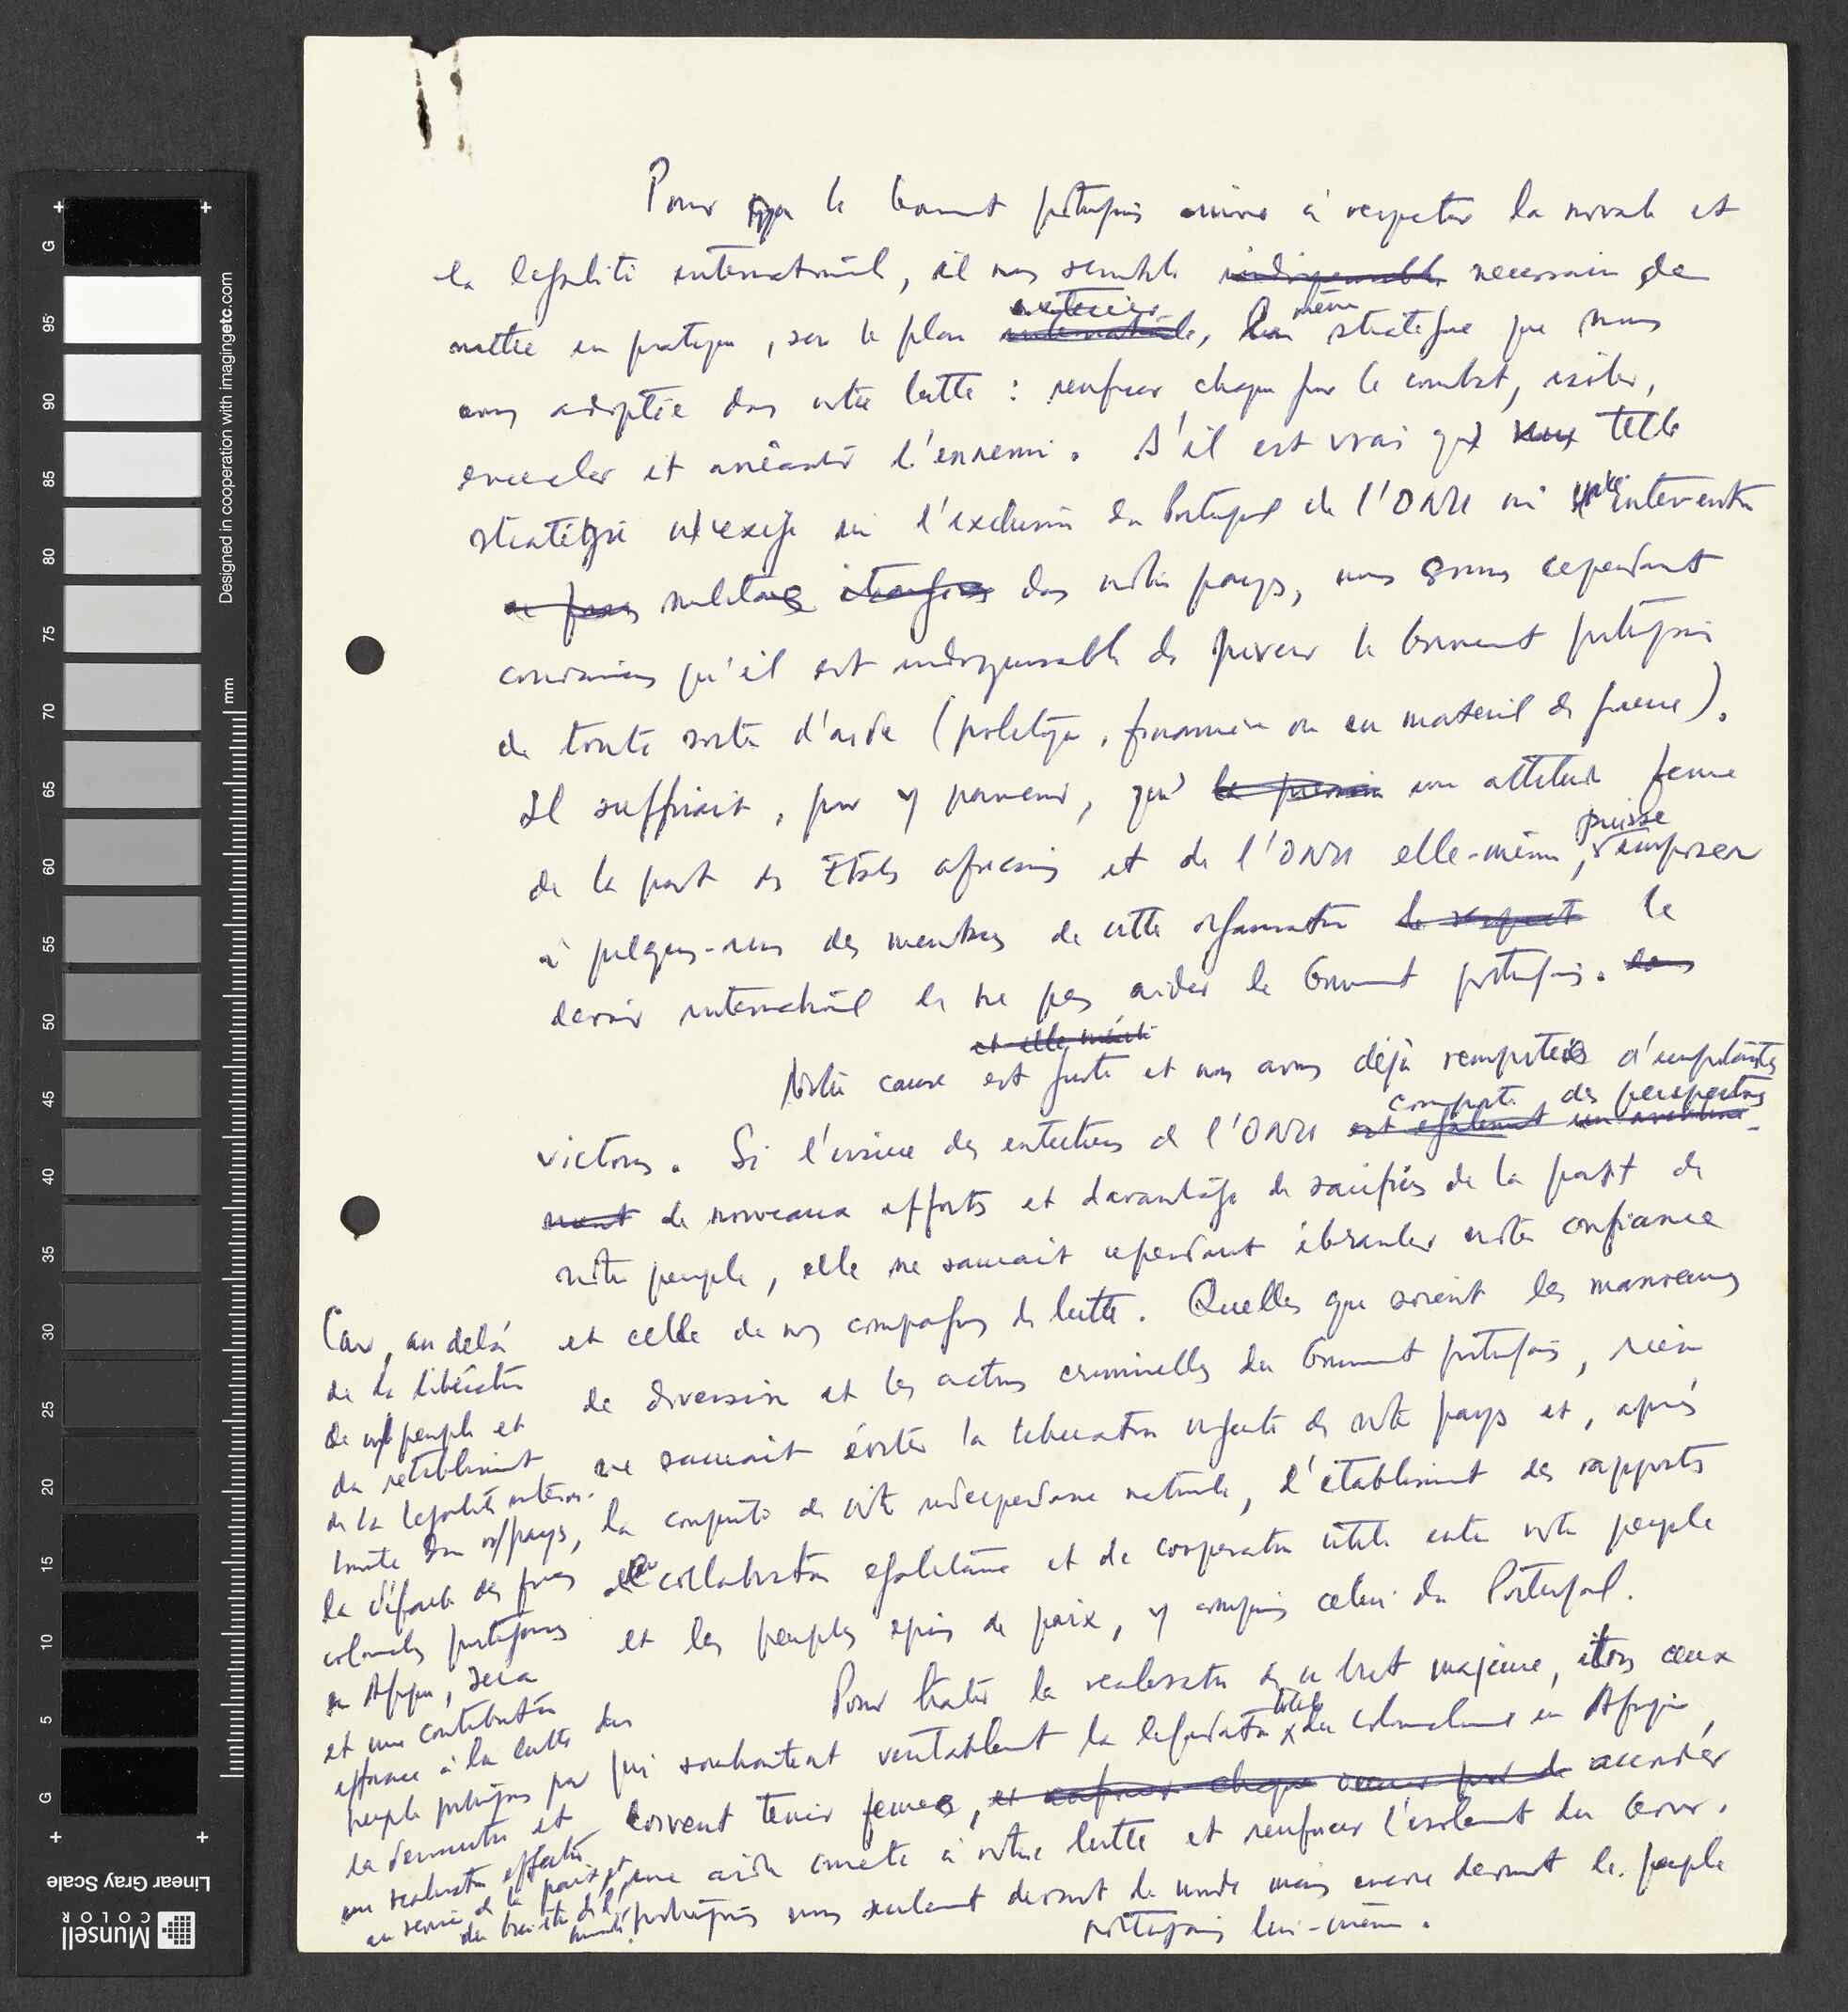 Pour que le Gouvnt portugais arrive à respecter la morale et
la légalité internationale, il nous semble indispensable necessaire de
mettre en pratique, sur le plan internationale, exterieur, la même stratégie que nous
avons adoptée dans notre lutte : renforcer chaque jour le combat, isoler,
encercler et anéantir l'ennemi. S'il est vrai que telle
stratégie n'exige ni l'exclusion du Portugal de l'ONU ni une intervention
militaire dans notre pays, nous sommes cependant
convaincus qu'il est indispensable de priver le Gouvnt portugais
de toute sorte d'aide (politique, financière ou en matériel de guerre).
Il suffirait, pour y parvenir, qu' une attitude ferme
de la part des Etats africains et de l'ONU elle-même, puisse imposer
à quelques-uns des membres de cette organisation le respect le
devoir international de ne pas aider le Gouvnt portugais.
et elle mérite
Notre cause est juste et nous avons déjà remporté d'importantes
victoires. Si l'issue des entretiens de l'ONU est également comporte des perspectives
de nouveaux efforts et davantage de sacrifices de la part de
notre peuple, elle ne saurait cependant ébranler notre confiance
et celle de nos compagnons de lutte. Quelles que soient les manoeuvres
de diversion et les actions criminelles du Gouvnt portugais, rien
ne saurait éviter la liberation urgente de notre pays et, après
la conquête de notre independance nationale, l'établissement des rapports
de collaboration egalitaire et de cooperation utile entre notre peuple
et les peuples épris de paix, y compris celui du Portugal.
Pour hater la realisation de ce but majeur, tous ceux
qui souhaitent veritablement la liquidation totale du colonialisme en Afrique,
doivent tenir fermes, et renforcer chaque accorder
une aide concrète à notre lutte et renforcer l'isolement du Gouv.
portugais non seulement devant le monde mais encore devant le peuple
portugais lui-même.
Car, au delà
de la libération
de notre peuple et
du retablissement
de la legalité interna-
tionale dans notre pays,
la défaite des forces
coloniales portugaises
en Afrique, sera
et une contribution
efficace à la lutte du
peuple portugais pour
la democratie et
une realisation effective
au service de la paix et